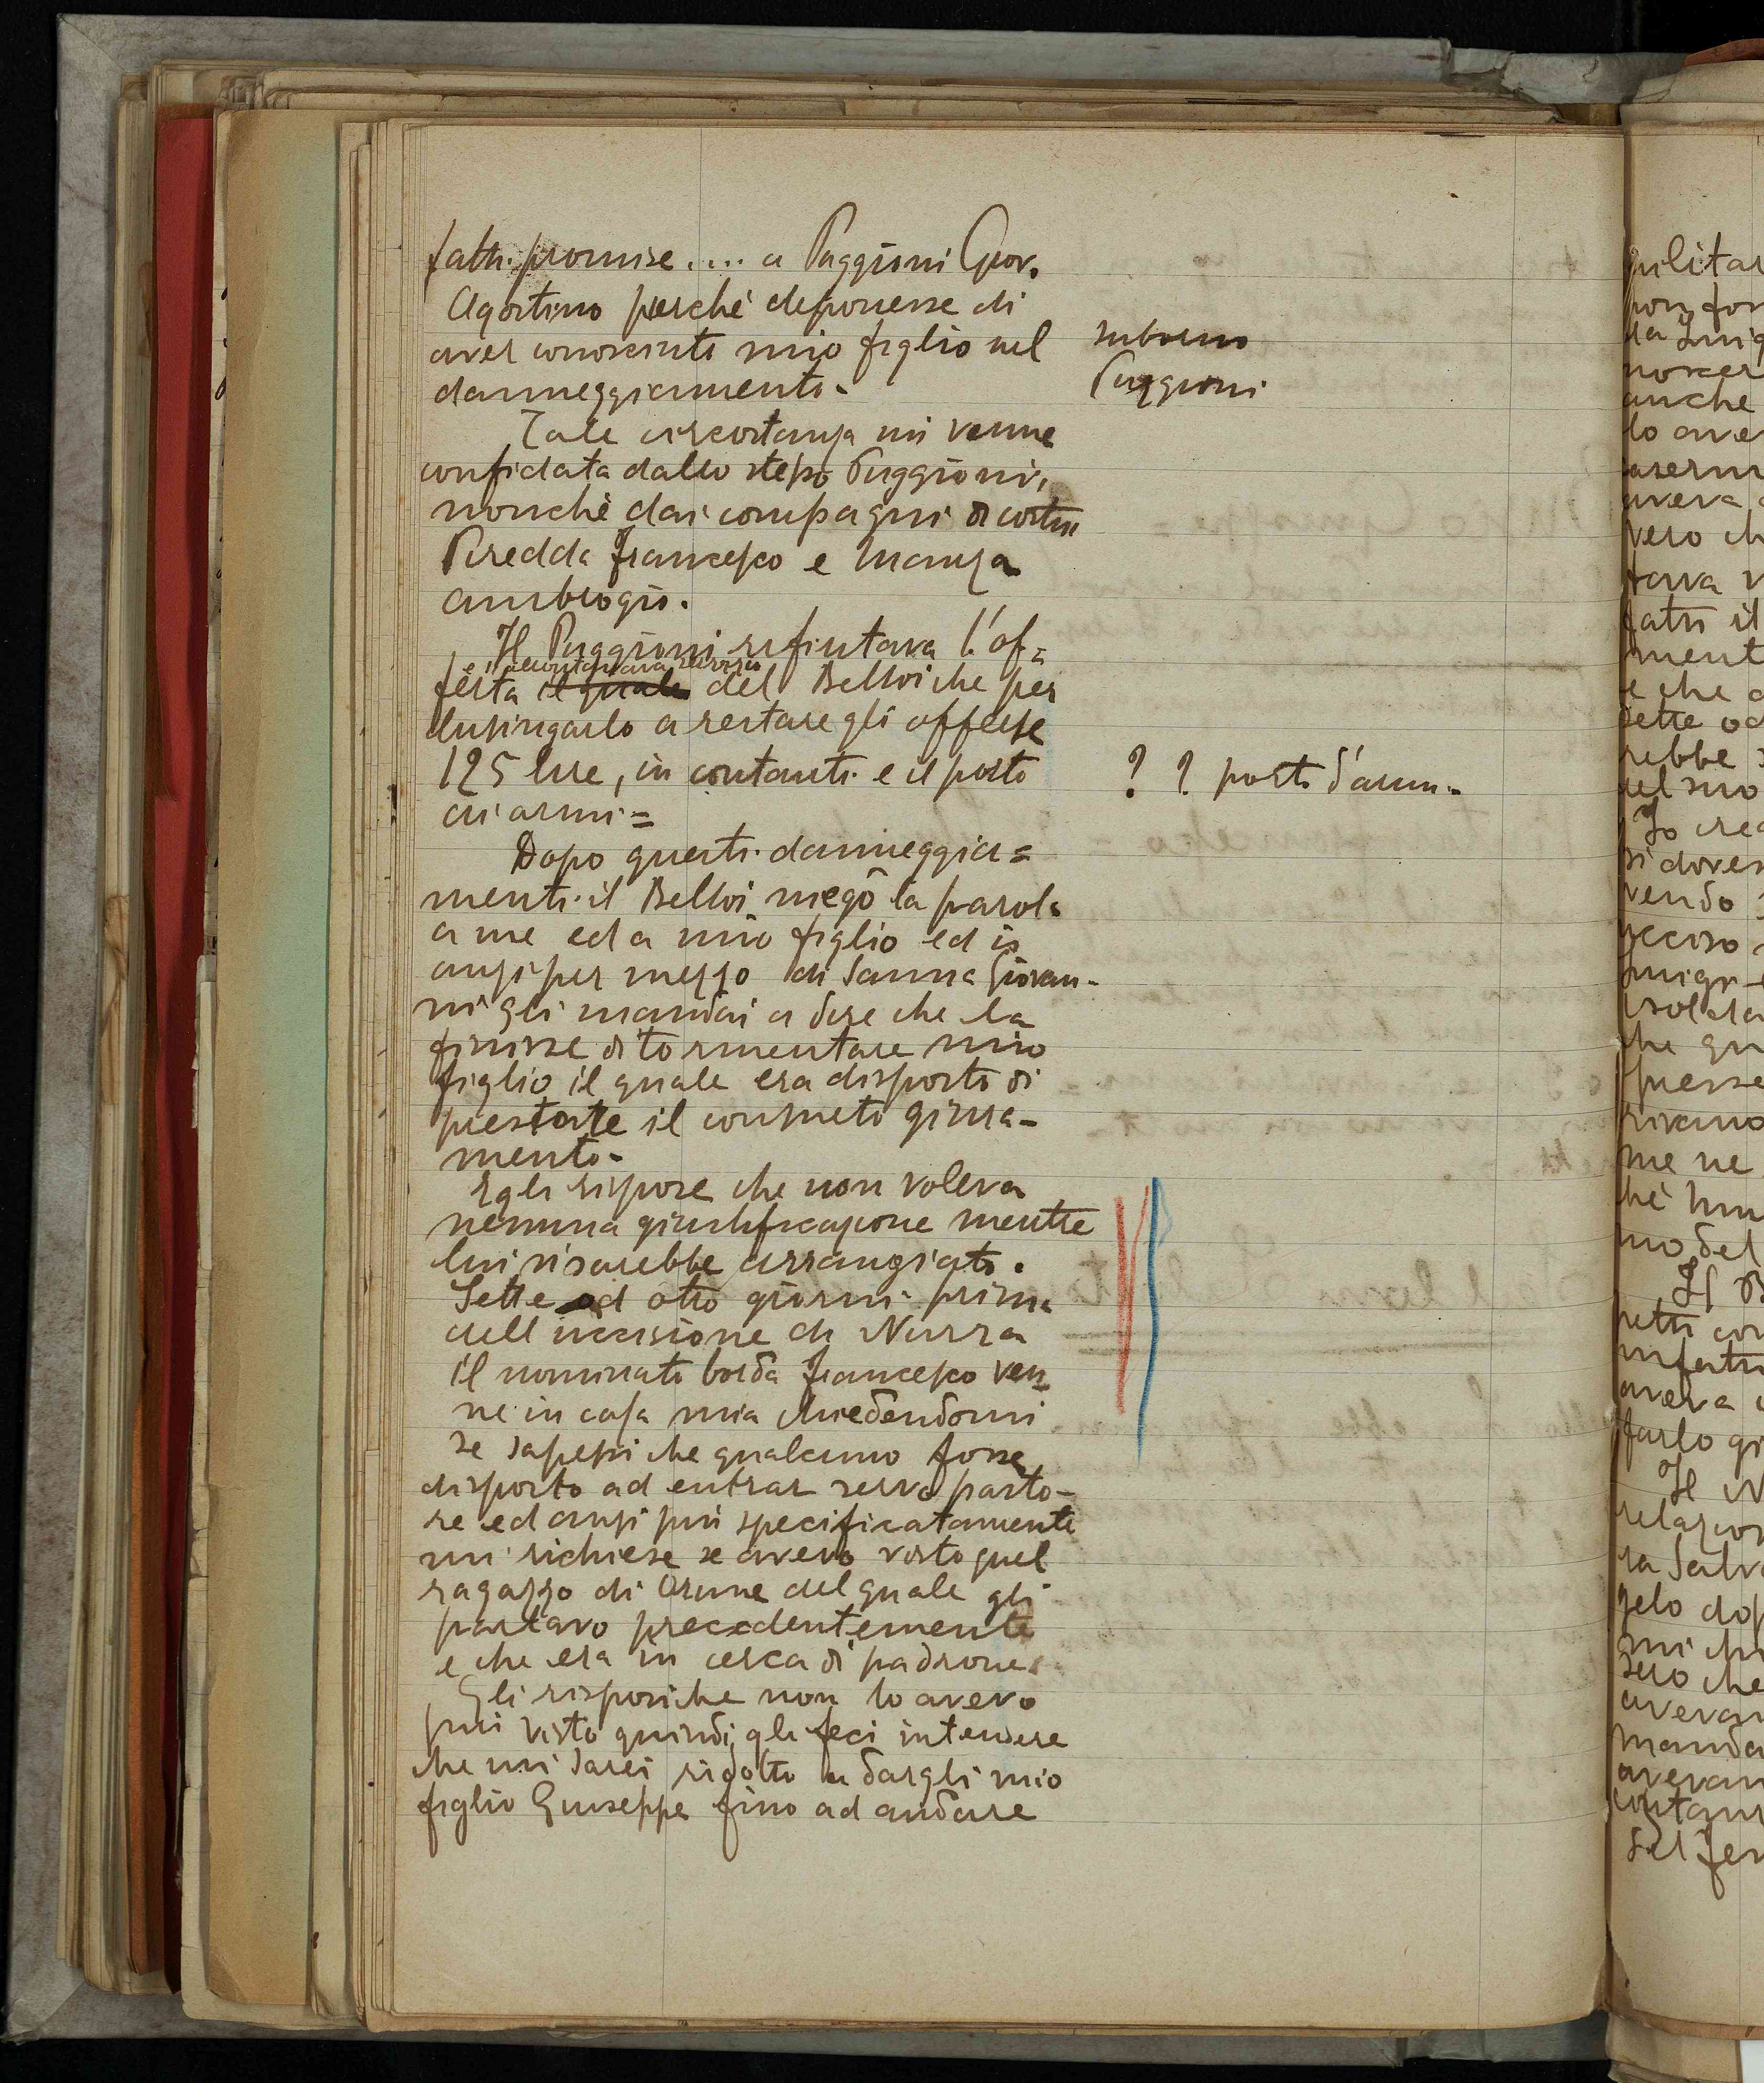 fatti promise .... a Puggioni Giov.
Agostino perchè deponesse di
aver conosciuto mio figlio nel
danneggiamento-
suborno
Puggioni
Tale circostanza mi venne
confidata dallo stesso Puggioni,
nonchè dai compagni di costui
Piredda Francesco e Manza
Ambrogio.
Il Puggioni rifiutava l'of=
ferta il quale del Belloi che per
lusingarlo a restare gli offerse
125 lire, in contanti e il porto
di armi=
? ? porto d'armi-
Dopo questi danneggia=
menti il Belloi negò la parola
a me ed a mio figlio ed io
anzi per mezzo di Sanna Giovan-
ni gli mandai a dire che la
finisse di tormentare mio
figlio il quale era disposto di
prestare il consueto giura-
mento-
Egli rispose che non voleva
nessuna giustificazione mentre
lui si sarebbe arrangiato.
Sette od otto giorni prima
dell'uccisione di Nurra
il nominato Francesco ven
ne in casa mia chiedendomi
se sapessi che qualcuno fosse
disposto ad entrar servo pasto-
re ed anzi più specificatamente
mi richiese se avevo visto quel
ragazzo di Orune del quale gli
parlavo precedentemente
e che era in cerca di padrone.
Gli risposi che non lo avevo
più visto quindi gli feci intendere
che mi sarei ridotto a dargli mio
figlio Giuseppe fino ad andare